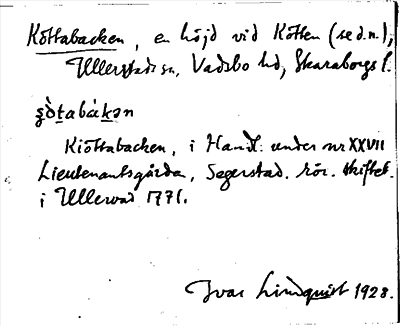 Köttabacken, en höjd vid Kötten (se d.n.),
Ullerstads sn, Vadsbo hd, Skaraborgs l.
ʂò̀tabákən
Kiöttabacken, i Handl. under nr XXVII
Lieutenantsgården, Segerstad. rör. skiftet
i Ullervad 1771.
Ivar Lindquist 1928.